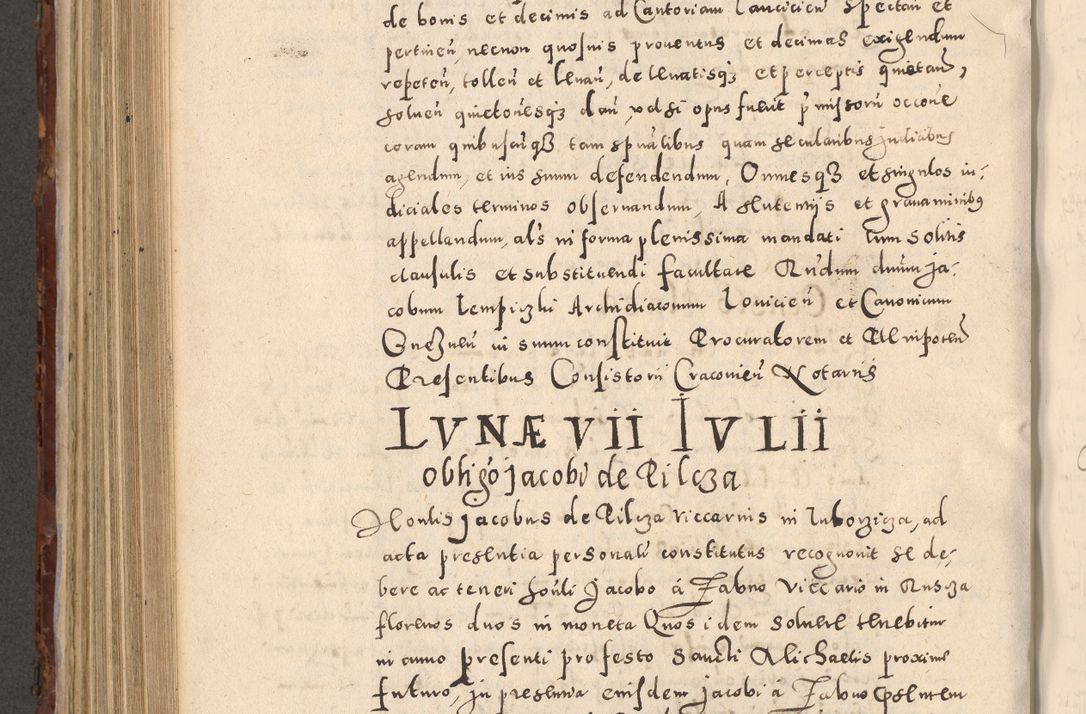 de bonis et decimis ad Cantoriam Lancicien̄ spectan̄ et
pertinen̄, necnon quosuis prouentus et decimas exigendum
repeten̄, tollen̄ et leuan̄, de leuatisqȝ et perceptis quietan̄,
soluen̄ quietōnesqȝ dan̄, vel si opus fuerit p̄missorū occōne
coram quibuscūqȝ tam spūalibus quam secularibus Judicibus
agendum, et ius suum defendendum, Omnesqȝ et singulos iu-
diciales terminos obseruandum, A sententijs et grauaminibus
appellandum, als in forma plenissima mandati cum solitis
clausulis et substituendi facultate Rn̄dum dn̄um Ja-
cobum Lempiczki Archidiaconum Louicien̄ et Canonicum
Gneznen̄ in suum constituit Procuratorem et Plenipoten̄
Presentibus Consistorii Cracouien̄ Notariis
LVNÆ VII IVLII
obligō Jacobi de Pilcza
Honlis Jacobus de Pilcza viccarius in Luborzicza, ad
acta presentia personalr̄ constitutus recognouit se de-
bere ac teneri honli Jacobo á Zabno viccario in Ruscza
florenos duos in moneta Quos idem soluere tenebitur
in anno presenti pro festo Sancti Michaelis proxime
futuro, in presentia eiusdem Jacobi á Zabno presentem